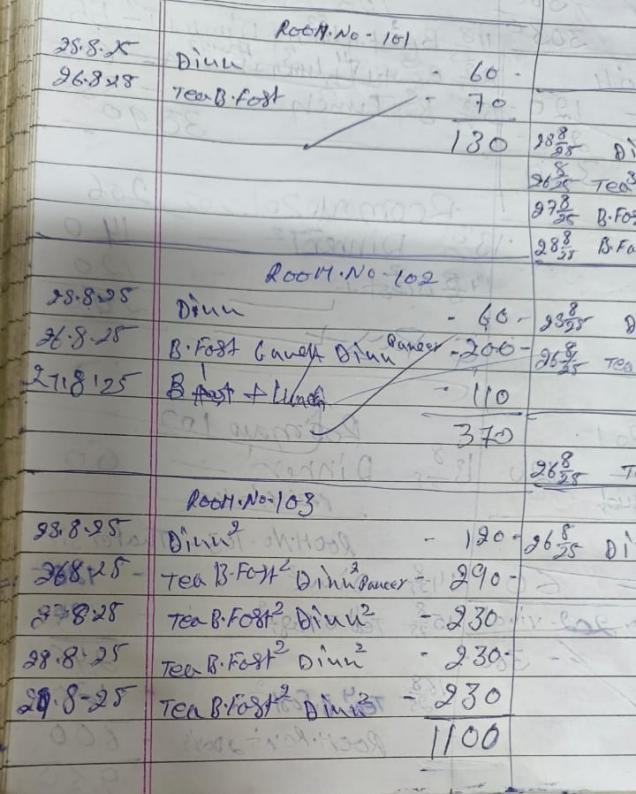 ROOM.No-101
25.8.25 Dinn - 60-
26.8.25 Tea B.Fast - 70
130
ROOM.No-102
25.8.25 Dinn - 60-
26.8.25 B.Fast Lunch Dinn Paneer - 200-
27.8.25 B Fast + Lunch - 110
370
ROOM.No-103
25.8.25 Dinn 2 - 120-
26.8.25 Tea B.Fast 2 Dinn 2 Paneer - 290-
27.8.25 Tea B.Fast 2 Dinn 2 - 230
28.8.25 Tea B.Fast 2 Dinn 2 - 230-
29.8-25 Tea B.Fast 2 Dinn 2 - 230
1100
25 8/25 Di
26 8/25 Tea 3
27 8/25 B.Fas
28 8/25 B.Fa
25 8/25 D
26 8/25 Tea
26 8/25 T
26 8/25 Di